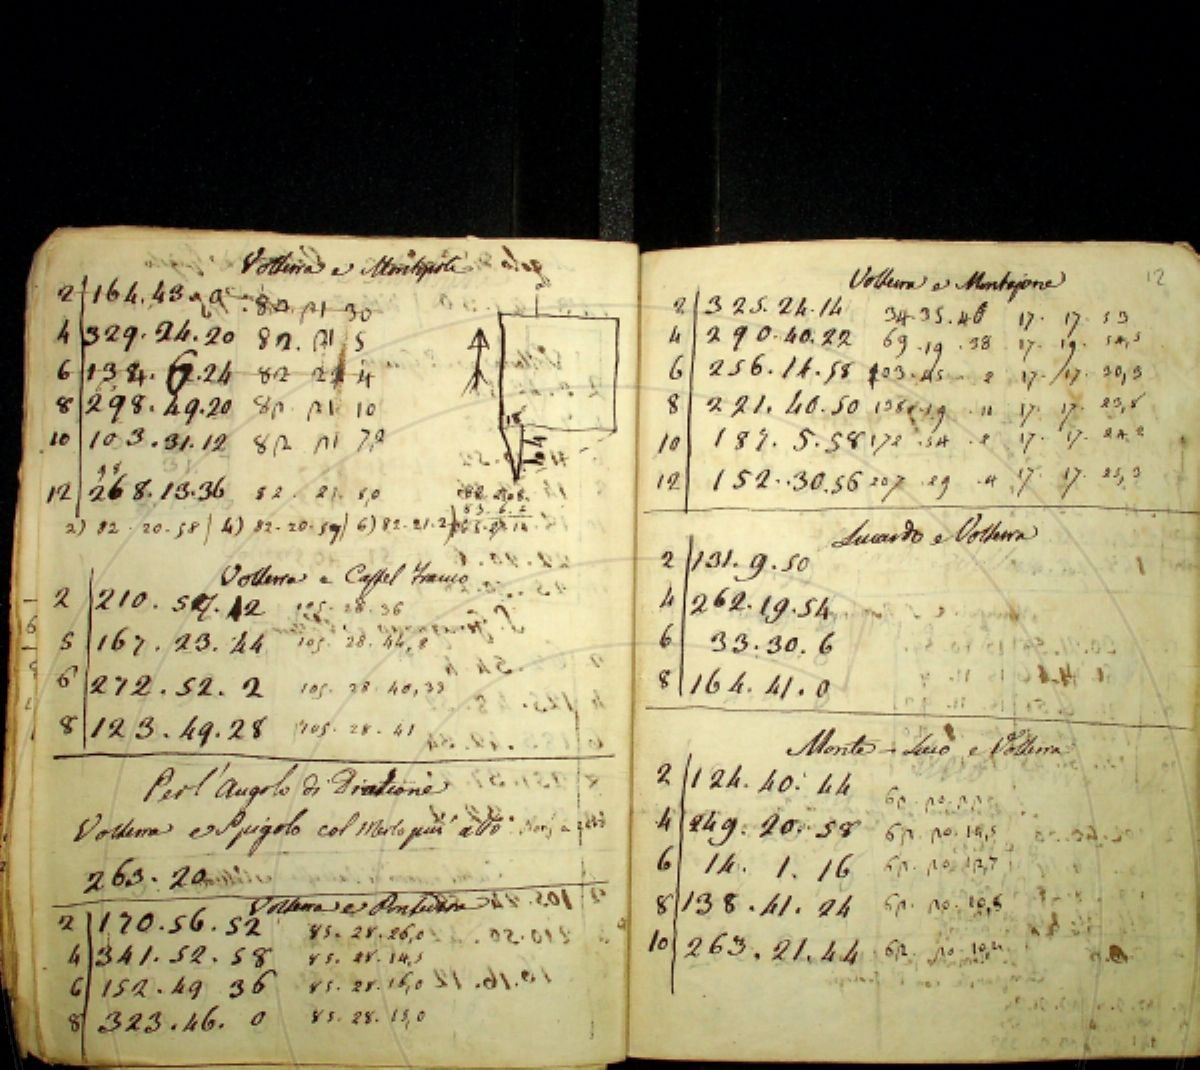 Volterra e Montopoli
2 164.43
4 329.24.20 82. 21 5
6 134. 6.24 82 21 4
8 298.49.20 82 21 10
10 103.31.12 82 21 7,2
12 268.13.36 82. 21. 8,0
2) 82.20.58 4) 82.20.59 6) 82.21.2
18
64
Volterra e Castel Franco
2 210.57.12 105.28.36
5 167.23.44 105.28.44,8
6 272.52.2 105.28.40,33
8 123.49.28 105.28.41
Per l'Angolo di Direzione
Volterra e Spigolo col Merlo più alto
263.20
Volterra e Pontedera
2 170.56.52 85.28.26,0
4 341.52.58 85.28.14,5
6 152.49 36 85.28.16,0
8 323.46. 0 85.28.15,0
12
Volterra e Montajone
2 325.24.14 34.35.46 17. 17. 53
4 290.40.22 69.19.38 17. 19. 54,5
6 256.14.58 103.45.2 17. 17. 30,3
8 221.40.50 138.19. 17. 17. 23,8
10 187.5.58 172.54.2 17. 17. 24,2
12 152.30.56 207.29.4 17. 17. 25,3
Lucardo e Volterra
2 131.9.50
4 262.19.54
6 33.30.6
8 164.41.0
Monte-Luco e Volterra
2 124.40.44
4 249.20.58 62.20.14,5
6 14.1.16 62.20.12,7
8 138.41.24 62.20.10,5
10 263.21.44 62.20.10,4